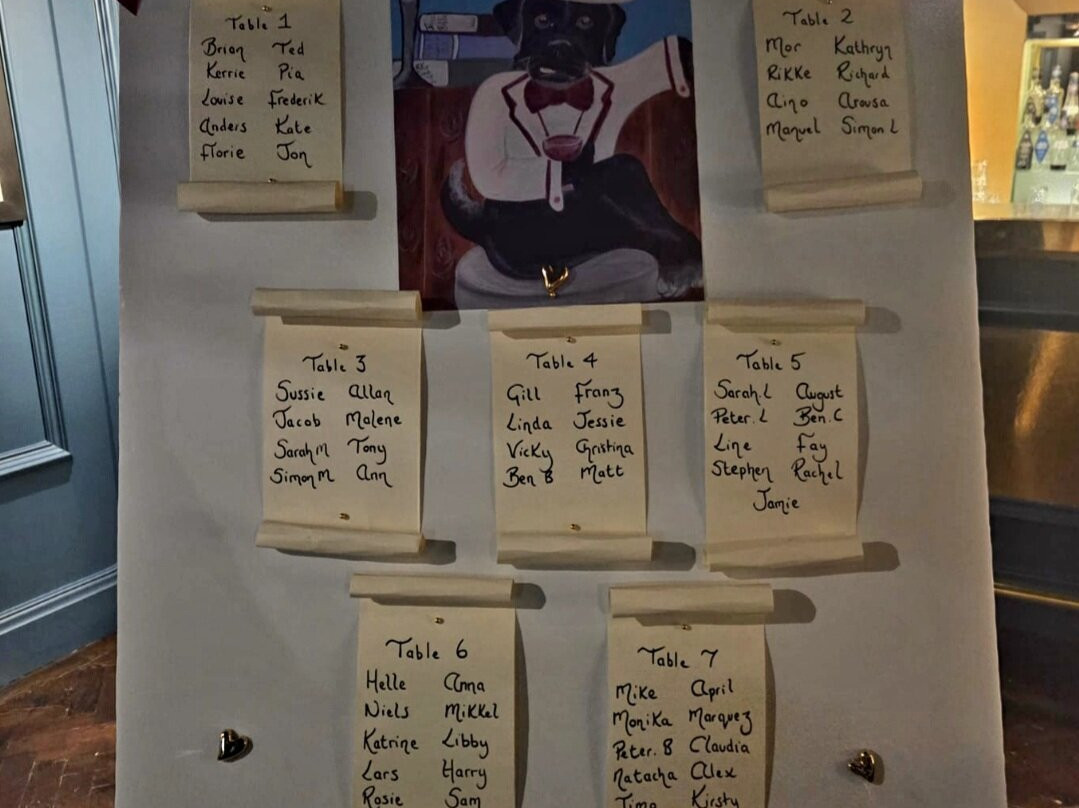 Table 1
Brian Ted
Kerrie Pia
Louise Frederik
Anders Kate
Florie Jon
Table 2
Mor Kathryn
Rikke Richard
Aino Arousa
Manuel Simon L
Table 3
Sussie Allan
Jacob Malene
Sarah M Tony
Simon M Ann
Table 4
Gill Franz
Linda Jessie
Vicky Christina
Ben B Matt
Table 5
Sarah.L August
Peter.L Ben.C
Line Fay
Stephen Rachel
Jamie
Table 6
Helle Anna
Niels Mikkel
Katrine Libby
Lars Harry
Rosie Sam
Table 7
Mike April
Monika Marquez
Peter.B Claudia
Natacha Alex
Timo Kirsty